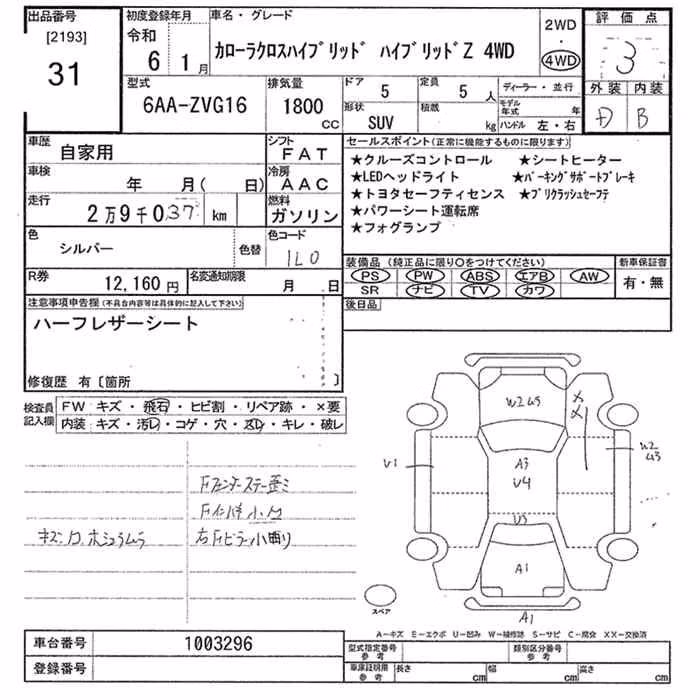 出品番号
[2193]
31
初度登録年月
令和
6 1月
車名・グレード
カローラクロスハイブリッド ハイブリッドZ 4WD
2WD
4WD
評価点
3
外装 内装
D B
型式
6AA-ZVG16
排気量
1800
CC
ドア
5
定員
5 人
形状
SUV
積載
kg
ディーラー・並行
モデル年式 年
ハンドル 左・右
車歴
自家用
シフト
FAT
車検
年 月( 日)
冷房
AAC
走行
2万9千037 km
燃料
ガソリン
色
シルバー
色替
色コード
1L0
R券
12,160円
名変通知期限
月 日
セールスポイント(正常に機能するものに限ります)
★クルーズコントロール ★シートヒーター
★LEDヘッドライト ★パーキングサポートブレーキ
★トヨタセーフティセンス ★プリクラッシュセーフテ
★パワーシート運転席
★フォグランプ
装備品(純正品に限り○をつけてください)
PS PW ABS エアB AW
SR ナビ TV カワ
新車保証書
有・無
後日品
注意事項申告欄(不具合内容等は具体的に記入して下さい)
ハーフレザーシート
修復歴 有〔箇所 〕
検査員
記入欄
FW キズ・飛石・ヒビ割・リペア跡・×要
内装 キズ・汚レ・コゲ・穴・スレ・キレ・破レ
Fフェンダーステー歪ミ
Fインパネ小凹
キズ、凹、ホシュウムラ
右Fピラー小曲り
W2 U3
X
X
A3
U4
U1
W2
U3
U3
A1
A1
スペア
A−キズ E−エクボ U−凹み W−補修跡 S−サビ C−腐食 XX−交換済
車台番号
1003296
登録番号
型式指定番号
参考
類別区分番号
参考
車庫証明用
参考
長さ cm 幅 cm 高さ cm